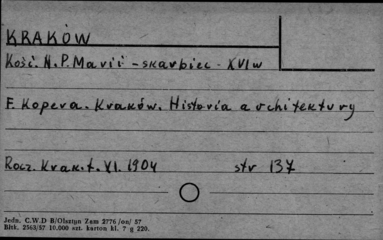 KRAKÓW
Kość. N.P. Marii - skarbiec - XVI w
F. Kopera. Kraków. Historia architektury
Rocz. Krak. t. VI. 1904 str 137
Jedn. C.W.D B/Olsztyn Zam 2776 /on/ 57
Błtk. 2563/57 10.000 szt. karton kl. 7 g 220.